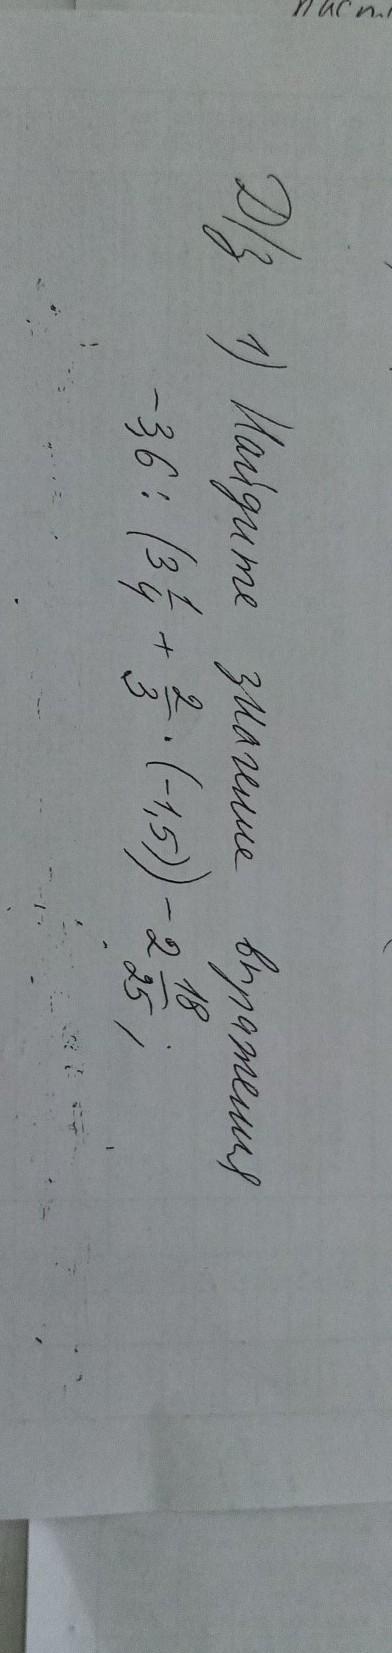 Д/з 1) Найдите значение выражения
-3,6 : (3 1/4 + 2/3 · (-1,5)) - 2 18/25 ;